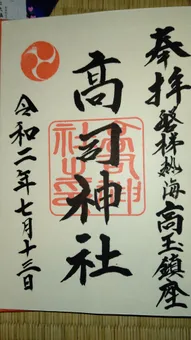 奉拝 磐梯熱海 高玉鎮座
高司神社
令和二年七月十三日